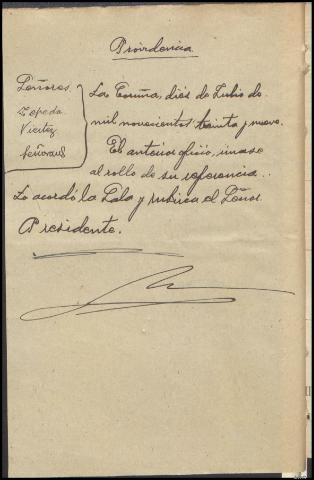 Providencia
Señores
Zepeda
Vieitez
La Coruña, diez de Julio de
mil novecientos treinta y nueve.
El anterior oficio, únase
al rollo de su referencia..
Lo acordó la Sala y rubrica el Señor
Presidente.